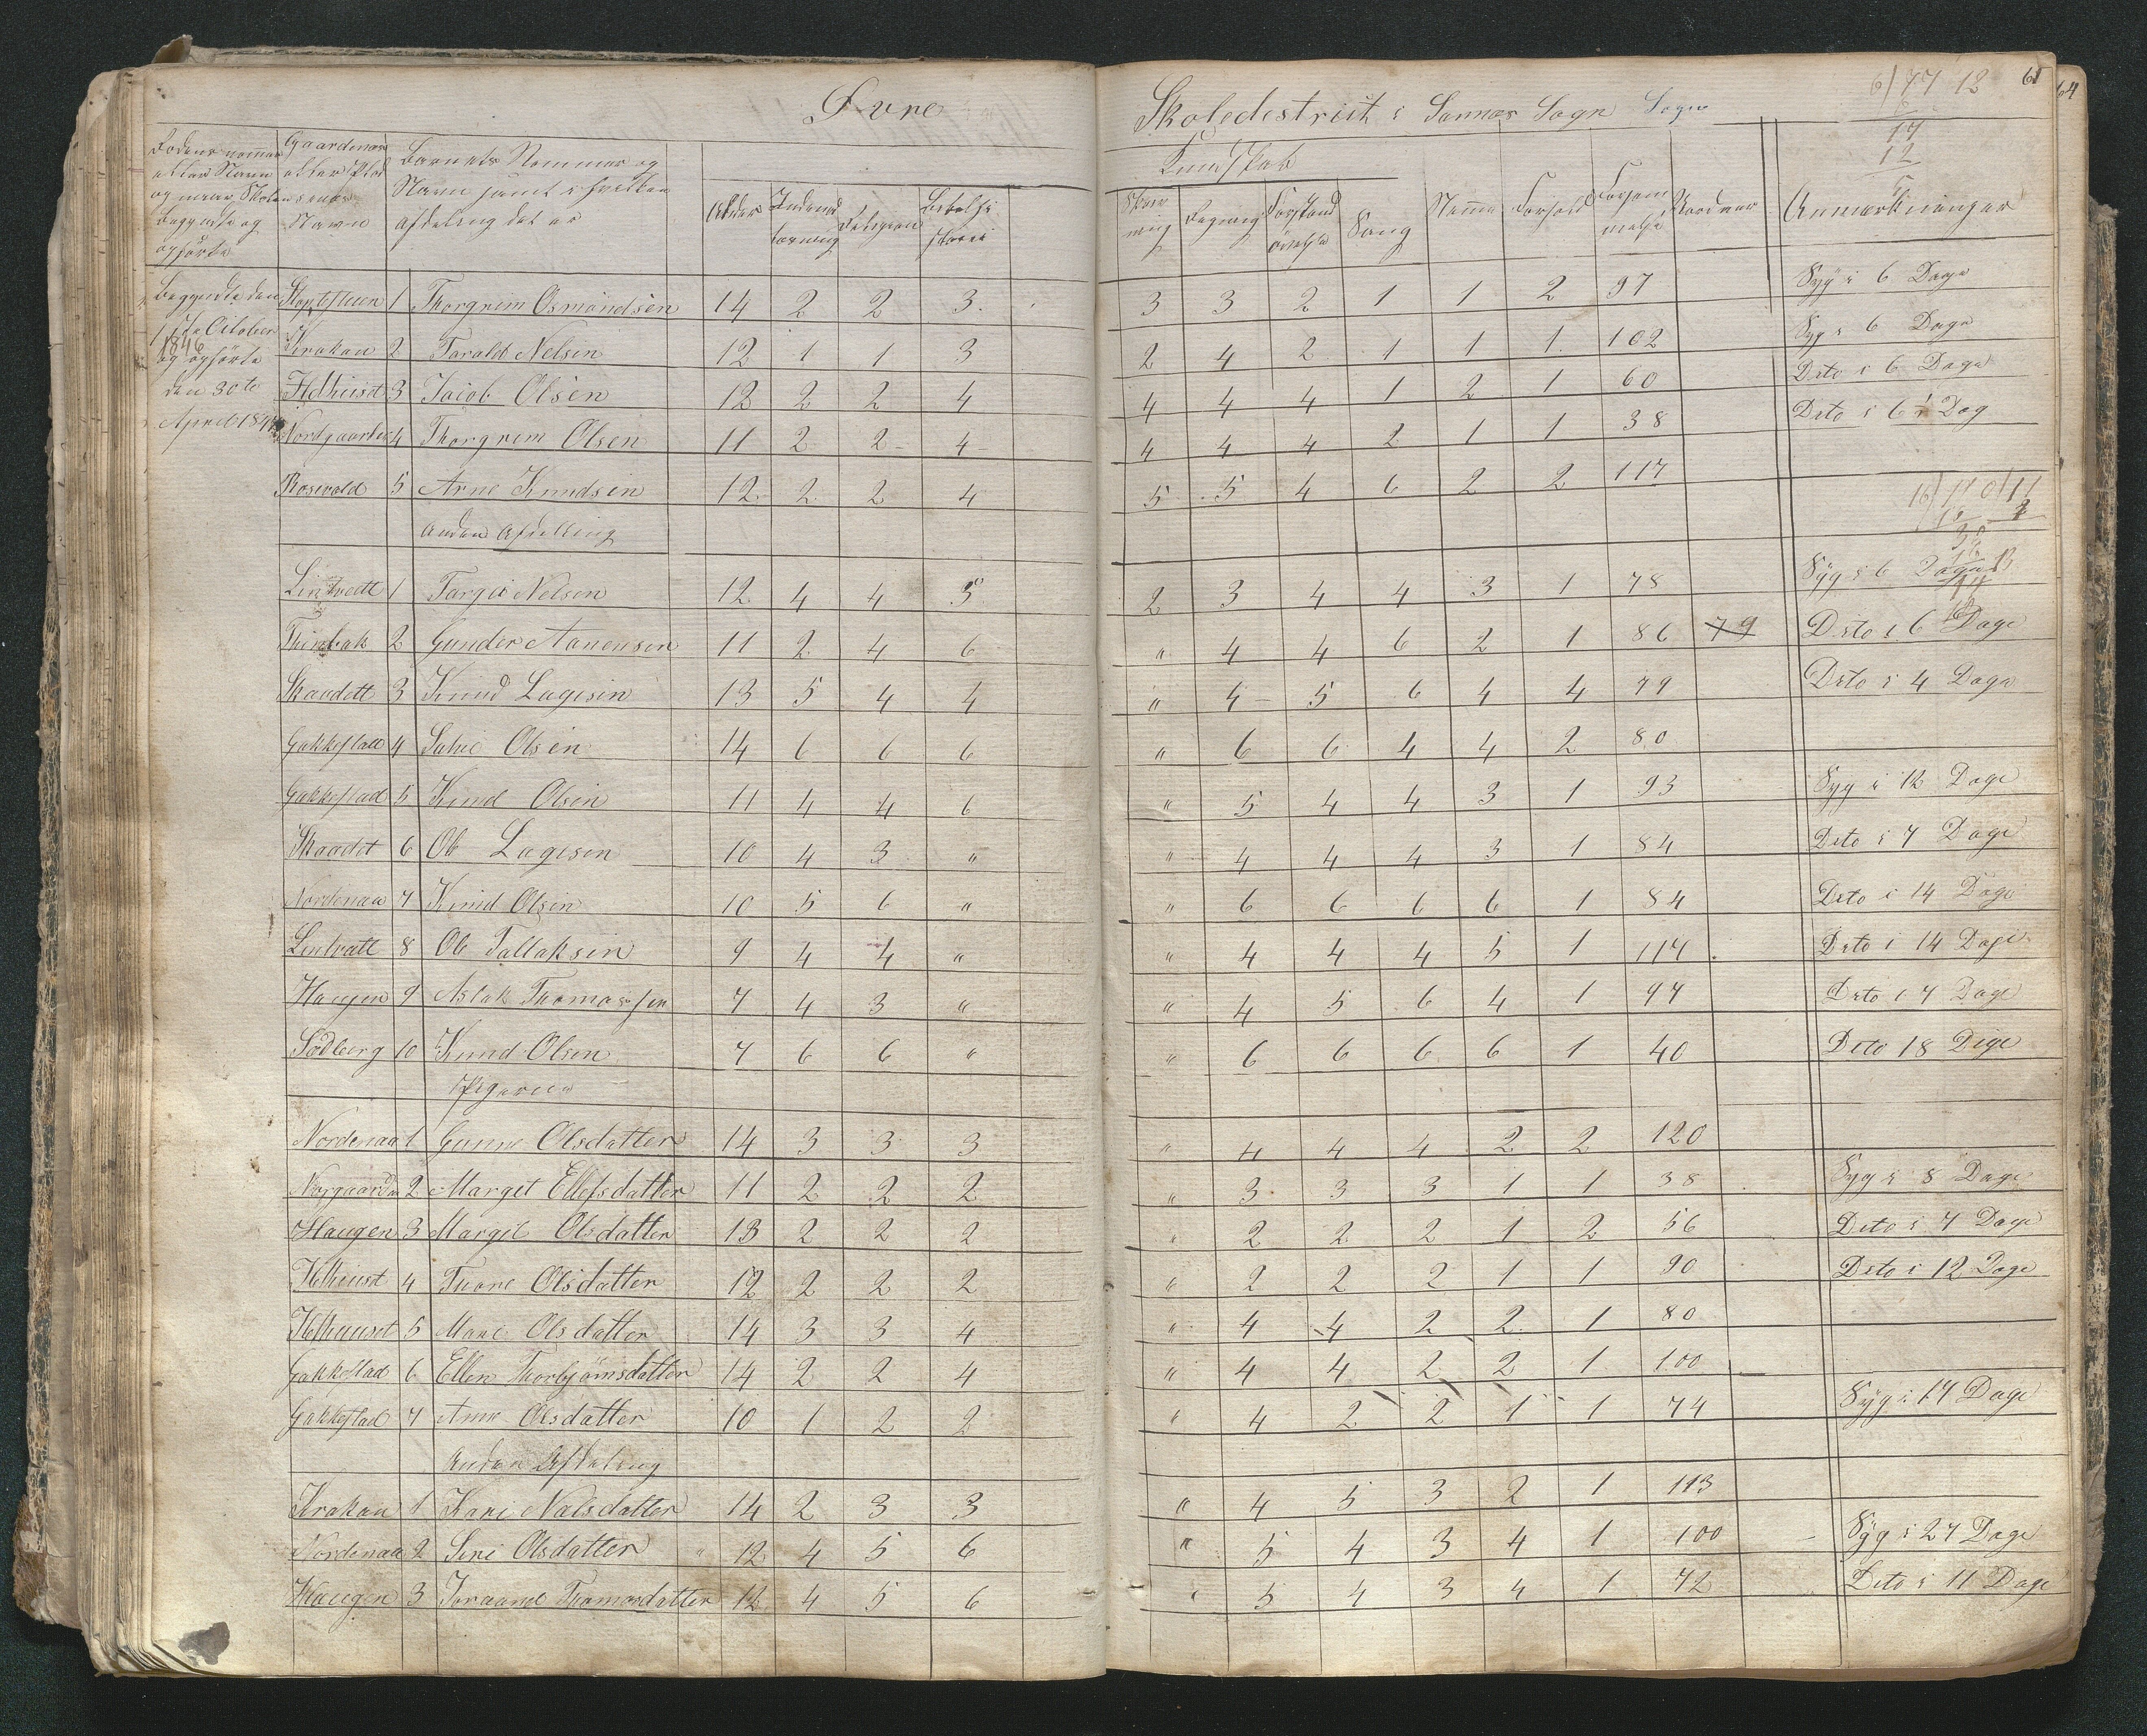 Øvre Skoledestrict i Sannes Sogn Sogn
6/77 12 61
64
6
17
12
5
Rodens nommer
eller Navn
og naar Skolen
begynte og
opførte
Gaardenes
eller Plad
senes
Navn
Barnets Nommer og
Navn samt i hvilken
afdeling det er
Alder
Indenad
læsning
Religion
Bibelhi
storie
Kundskab
Skriv
ning
Regning
Forstand
øvelse
Sang
Nemme
Forhold
Forsøm
melse
Anmærkninger
Begyndte den
1ste October
1846
og opførte
den 30te
April 1847
1 Thorgrem Osmondsen 14 2 2 3 3 3 2 1 1 2 97 Syg i 6 Dage
Krakan 2 Tarald Nelsen 12 1 1 3 2 4 2 1 1 1 102 Syg i 6 Dage
3 Jacob Olsen 12 2 2 4 4 4 4 1 2 1 60 Dito i 6 Dage
Nordgaarden 4 Thorgrem Olsen 11 2 2 4 4 4 4 2 1 1 38 Dito i 6 Dag
Rosevold 5 Arne Knudsen 12 2 2 4 5 5 4 6 2 2 117
Anden Afdeling
Lintvedt 1 Targei Nelsen 12 4 4 5 2 3 4 4 3 1 78 Syg i 6 Dage
2 Gunder Aanensen 11 2 4 6 " 4 4 6 2 1 86 79 Dito i 6 Dage
Skaadett 3 Knud Lagesen 13 5 4 4 " 4 5 6 4 4 79 Dito i 4 Dage
Gakkestad 4 Salve Olsen 14 6 6 6 " 6 6 4 4 2 80
Gakkestad 5 Knud Olsen 11 4 4 6 " 5 4 4 3 1 93 Syg i 12 Dage
Skaadet 6 Ole Lagesen 10 4 3 " " 4 4 4 3 1 84 Dito i 7 Dage
Nordenaa 7 Knud Olsen 10 5 6 " " 6 6 6 6 1 84 Dito i 14 Dage
Lintvatt 8 Ole Tallaksen 9 4 4 " " 4 4 4 5 1 114 Dito i 14 Dage
Haugen 9 Aslak Thomassen 7 4 3 " " 4 5 6 4 1 97 Dito i 7 Dage
Sødberg 10 Knud Olsen 7 6 6 " " 6 6 6 6 1 40 Dito 18 Dage
Pigerne
Nordenaa 1 Gunne Olsdatter 14 3 3 3 " 4 4 4 2 2 120
2 Marget Ellefsdatter 11 2 2 2 " 3 3 3 1 1 38 Syg i 8 Dage
Haugen 3 Margit Olsdatter 13 2 2 2 " 2 2 2 1 2 56 Dito i 7 Dage
4 Tuone Olsdatter 12 2 2 2 " 2 2 2 1 1 90 Dito i 12 Dage
5 Mari Olsdatter 14 3 3 4 " 4 4 2 2 1 80
Gakkestad 6 Ellen Thorbjørnsdatter 14 2 2 4 " 4 4 2 2 1 100
Gakkestad 7 Anne Olsdatter 10 1 2 2 " 4 2 2 1 1 74 Syg i 17 Dage
Anden Afdeling
Krakan 1 Kari Nelsdatter 14 2 3 3 " 4 5 3 2 1 113
Nordenaa 2 Seni Olsdatter 12 4 5 6 " 5 4 3 4 1 100 Syg i 27 Dage
Haugen 3 Joraand Thomasdatter 12 4 5 6 " 5 4 3 4 1 72 Dito i 11 Dage